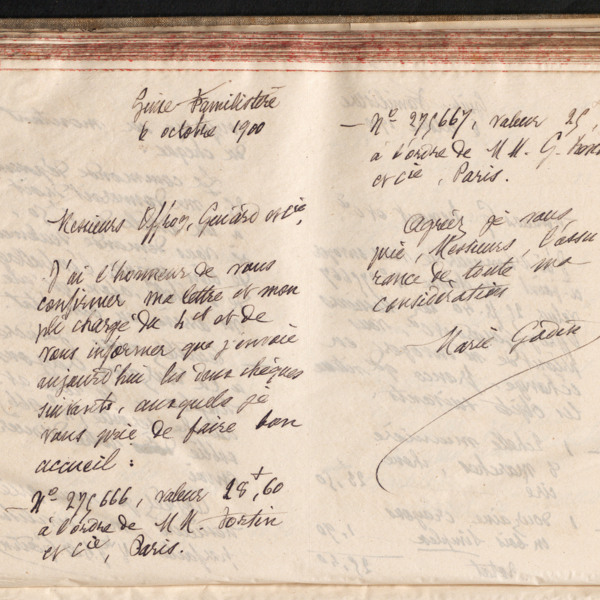 Guise Familistère
6 octobre 1900
Messieurs Offroy, Guiard et Cie,
J'ai l'honneur de vous
confirmer ma lettre et mon
pli chargé du 4 ct et de
vous informer que j'envoie
aujourd'hui les deux chèques
suivants, auxquels je
vous prie de faire bon
accueil :
— No 275666, valeur 28+,60
à l'ordre de M M. Fortin
et Cie, Paris.
— No 275667, valeur 25
à l'ordre de M M. G.
et Cie, Paris.
Agréez je vous
prie, Messieurs, l'assu
rance de toute ma
considération
Marie Godin